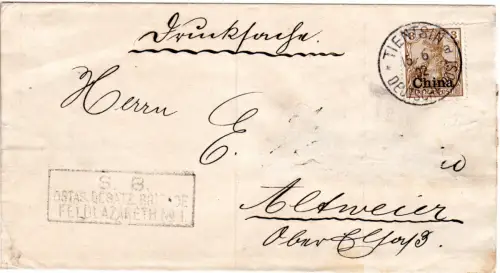 Drucksache.
TIENTSIN
3
China
Herrn E.
S. B.
OSTAS. BESATZ. BRIGADE
FELDLAZARETH No 1
Altweier
Ober Elsaß.